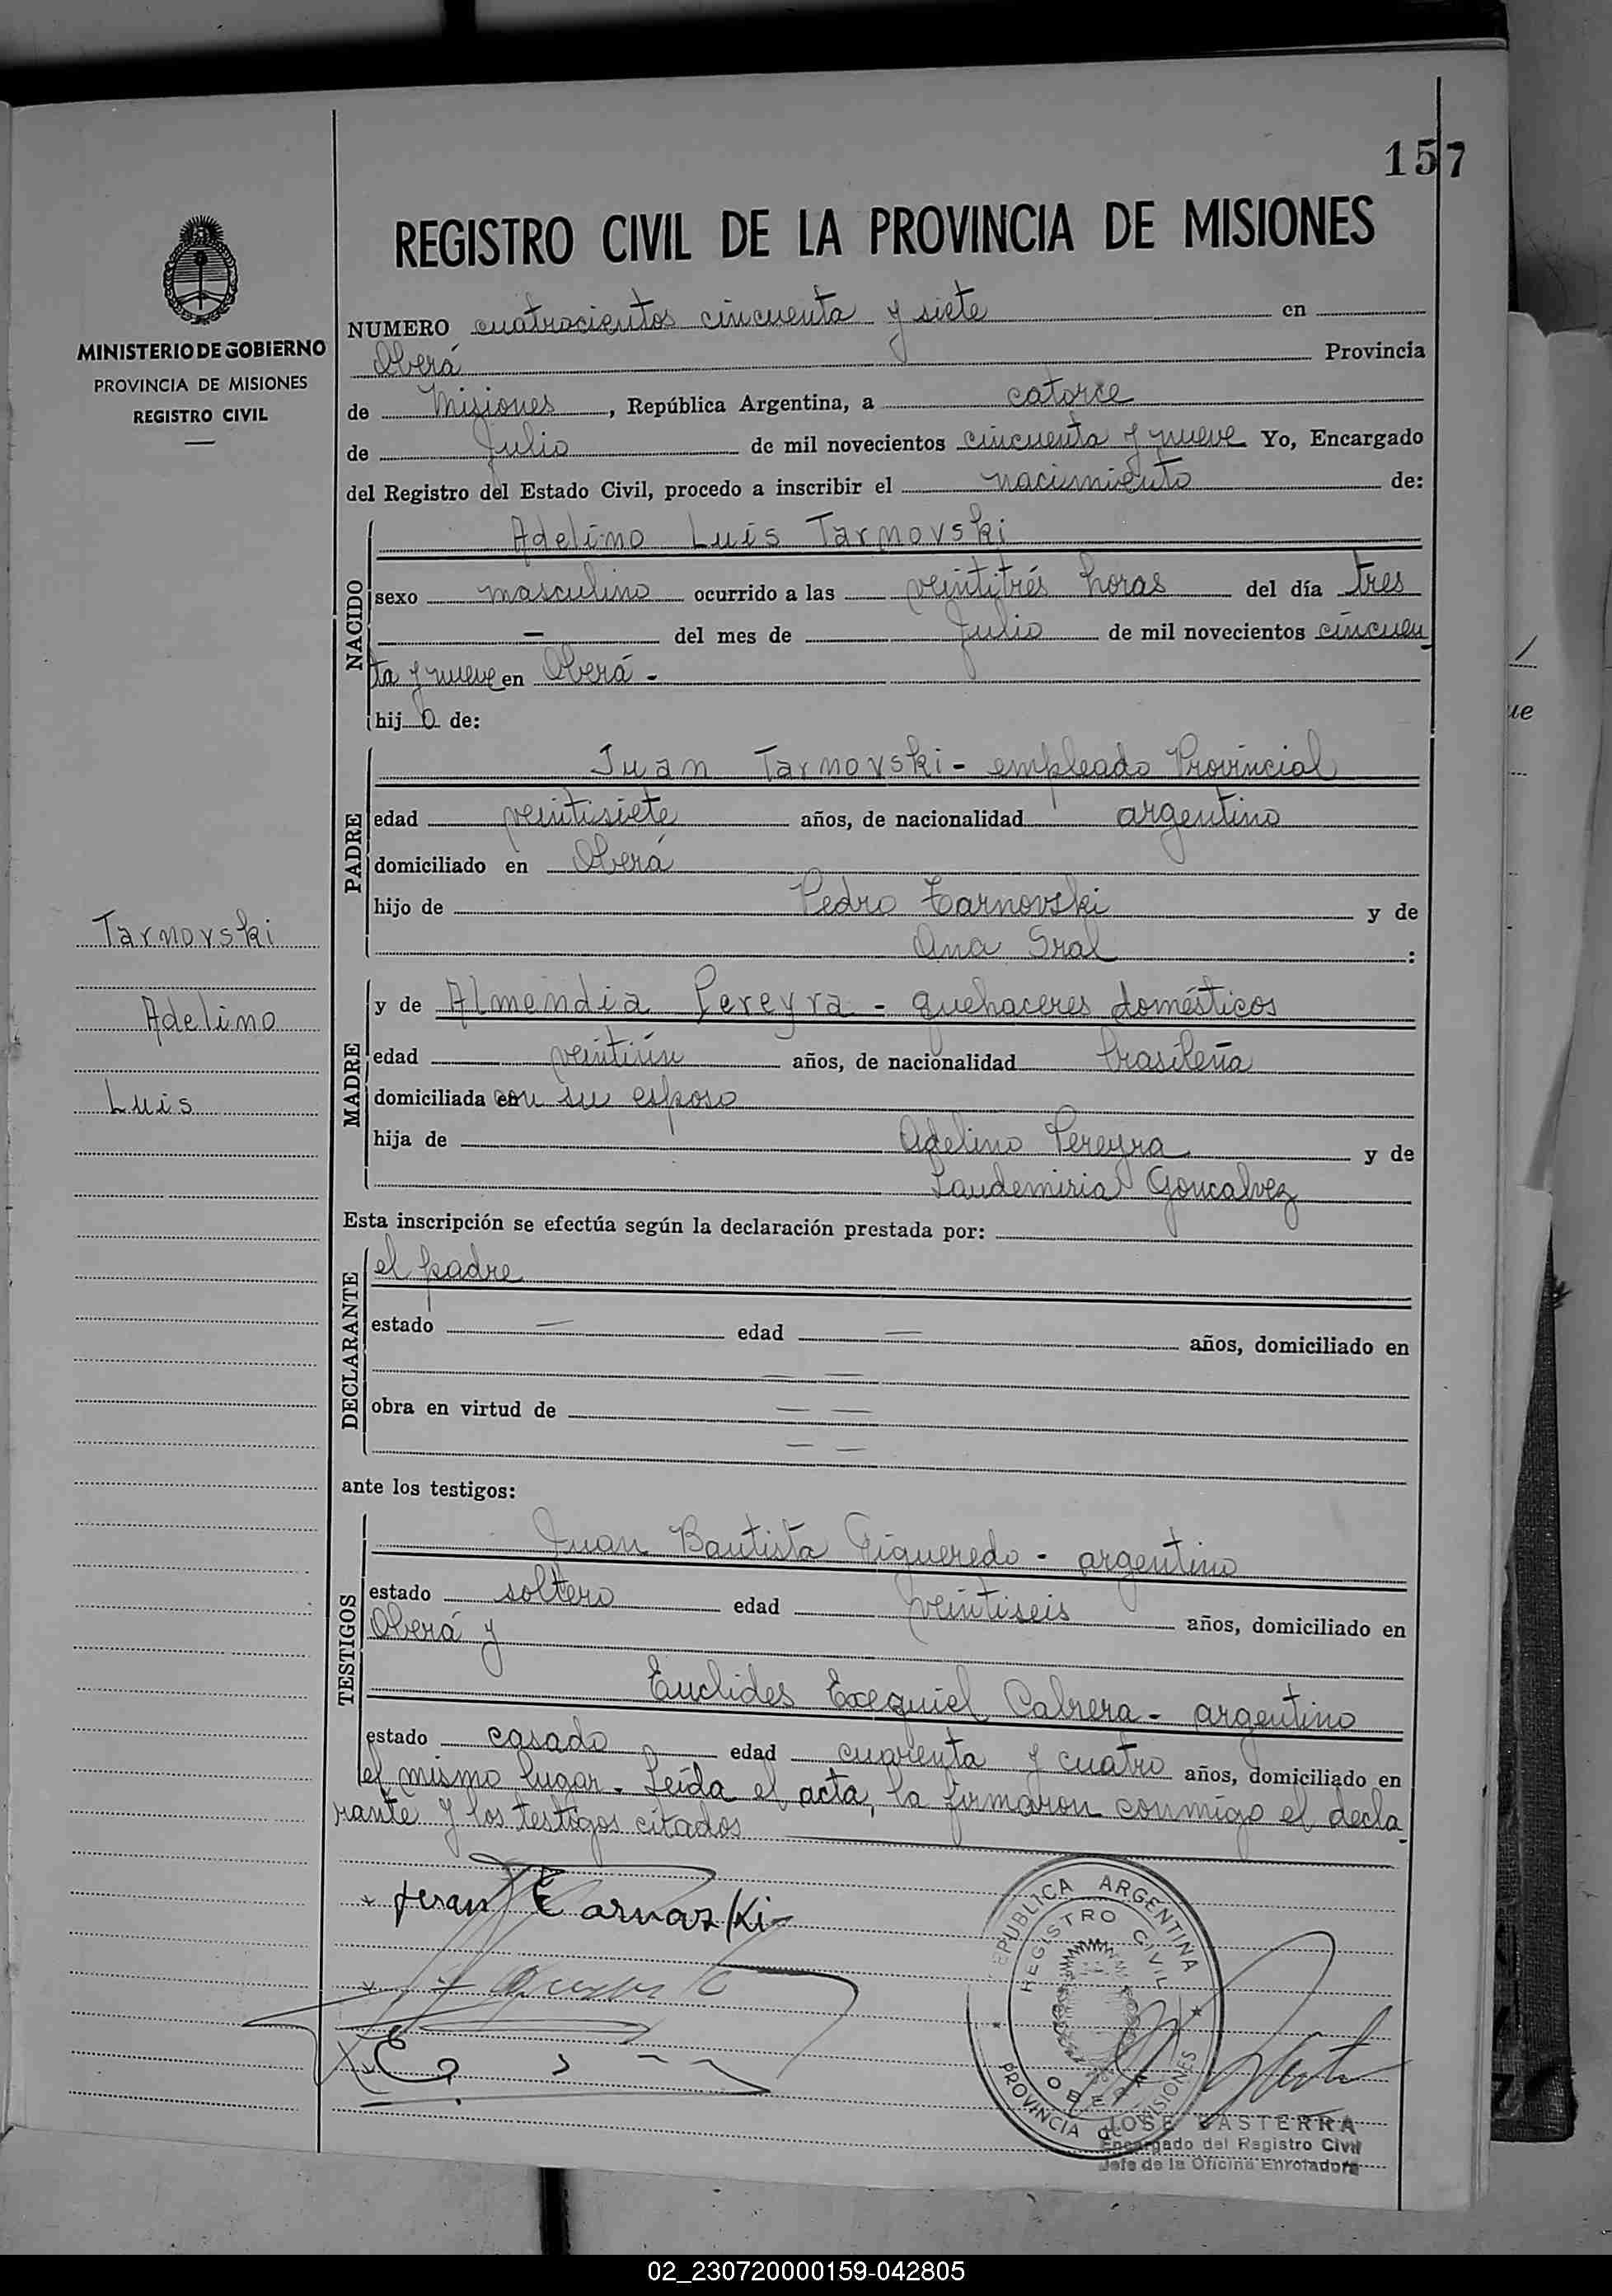 157
REGISTRO CIVIL DE LA PROVINCIA DE MISIONES
MINISTERIO DE GOBIERNO
PROVINCIA DE MISIONES
REGISTRO CIVIL
NUMERO cuatrocientos cincuenta y siete en
Oberá Provincia
de Misiones, República Argentina, a catorce
de Julio de mil novecientos cincuenta y nueve Yo, Encargado
del Registro del Estado Civil, procedo a inscribir el nacimiento de:
NACIDO
Adelino Luis Tarnovski
sexo masculino ocurrido a las veintitrés horas del día tres
— del mes de Julio de mil novecientos cincuen
ta y nueve en Oberá -
hijo de:
PADRE
Juan Tarnovski - empleado Provincial
edad veintisiete años, de nacionalidad argentino
domiciliado en Oberá
hijo de Pedro Tarnovski y de
Ana Sral :
Tarnovski
Adelino
Luis
MADRE
y de Almendia Pereyra - quehaceres domésticos
edad veintiún años, de nacionalidad brasileña
domiciliada con su esposo
hija de Adelino Pereyra y de
Laudemiria Goncalvez
Esta inscripción se efectúa según la declaración prestada por:
DECLARANTE
el padre
estado — edad — años, domiciliado en
— —
obra en virtud de — —
— —
ante los testigos:
TESTIGOS
Juan Bautista Figueredo - argentino
estado soltero edad veintiseis años, domiciliado en
Oberá y
Euclides Exequiel Cabrera - argentino
estado casado edad cuarenta y cuatro años, domiciliado en
el mismo lugar. Leída el acta, la firmaron conmigo el decla
rante y los testigos citados
REPUBLICA ARGENTINA
REGISTRO CIVIL
OBERA
PROVINCIA MISIONES
JOSE
Encargado del Registro Civil
Jefe de la Oficina Enroladora
02_230720000159-042805